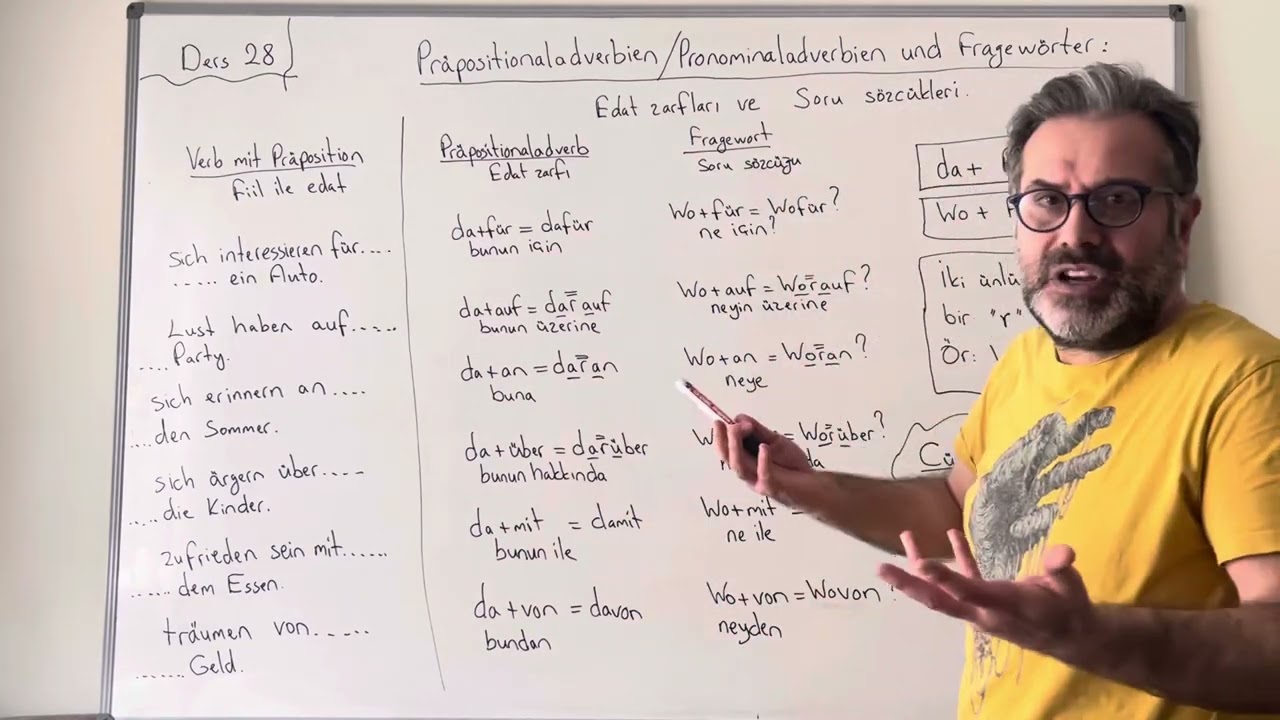 Ders 28
Präpositionaladverbien/Pronominaladverbien und Fragewörter:
Edat zarfları ve Soru sözcükleri.
Verb mit Präposition
fiil ile edat
Sich interessieren für....
..... ein Auto.
Lust haben auf.....
.... Party.
sich erinnern an ....
....den Sommer.
sich ärgern über....
.... die Kinder.
zufrieden sein mit......
...... dem Essen.
träumen von.....
...... Geld.
Präpositionaladverb
Edat zarfı
da+für = dafür
bunun için
da+auf = darauf
bunun üzerine
da+an = daran
buna
da+über = darüber
bunun hakkında
da+mit = damit
bunun ile
da+von = davon
bundan
Fragewort
Soru sözcüğü
Wo+für = Wofür?
ne için?
Wo+auf = Worauf?
neyin üzerine
Wo+an = Woran?
neye
= Worüber?
Wo+mit =
ne ile
Wo+von = Wovon?
neyden
da+
Wo +
İki ünlü
bir "r"
Ör: